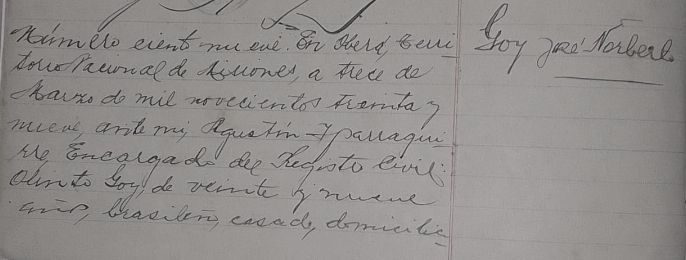 Número cient nueve. En Oberá, Terri-
torio Nacional de Misiones, a trece de
Marzo de mil novecientos treinta y
nueve, ante mi, Agustín Yparragui-
rre, Encargado del Registro Civil:
Olinto Goy, de veinte y nueve
años, brasileño, casado, domicilia-
Goy José Norberto